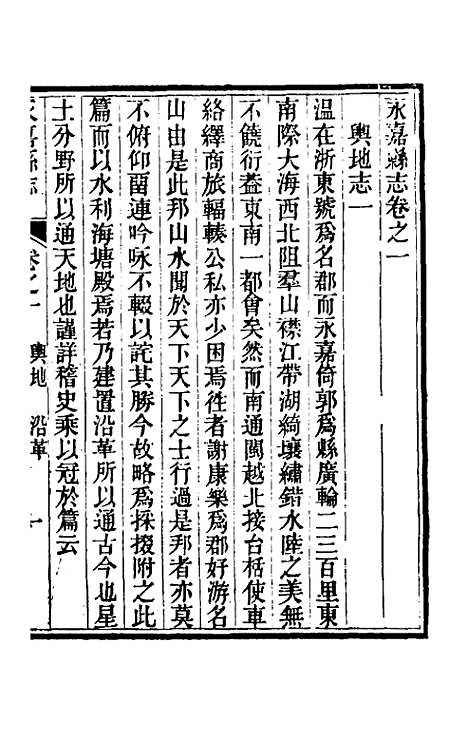 永嘉縣志卷之一
輿地志一
温在浙東號爲名郡而永嘉倚郭爲縣廣輪二三百里東
南際大海西北阻羣山襟江帶湖綺壤繡錯水陸之美無
不饒衍葢東南一都會矣然而南通閩越北接台栝使車
絡繹商旅輻輳公私亦少困焉徃者謝康樂爲郡好游名
山由是此邦山水聞於天下天下之士行過是邦者亦莫
不俯仰畱連吟咏不輟以詫其勝今故略爲採掇附之此
篇而以水利海塘殿焉若乃建置沿革所以通古今也星
土分野所以通天地也謹詳稽史乘以冠於篇云
永嘉縣志 卷之一 輿地 沿革 一